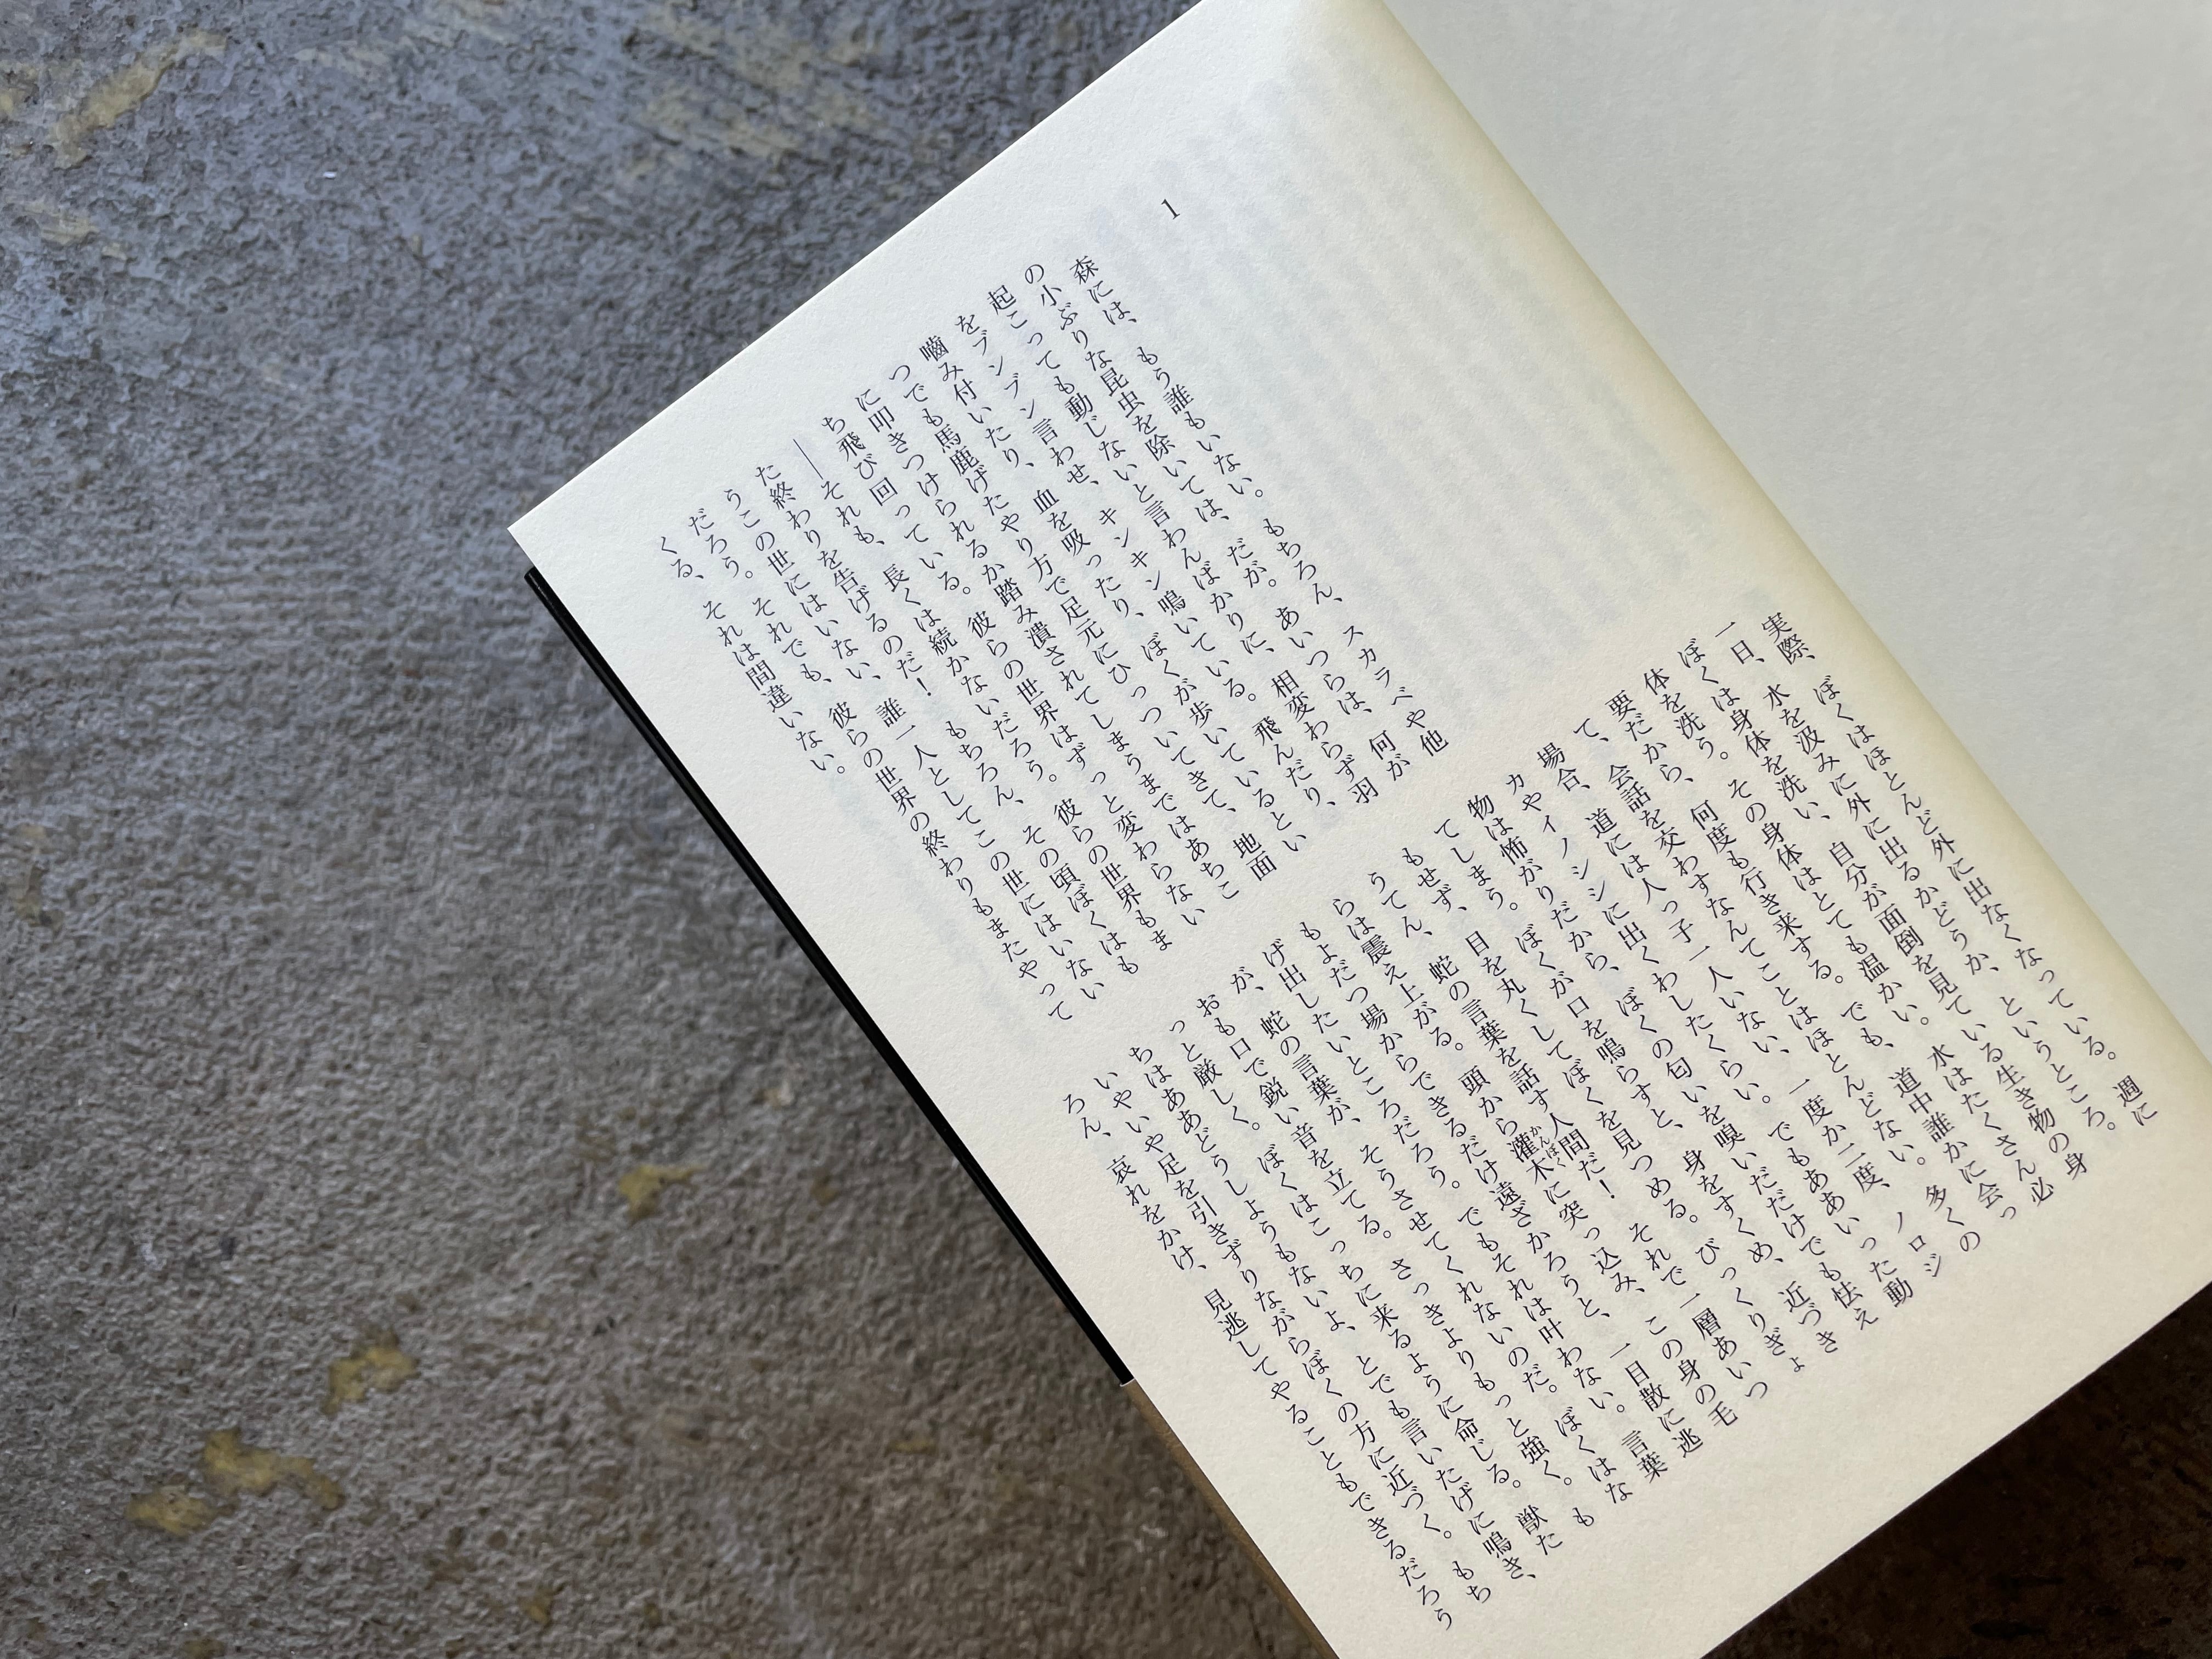 1
森には、もう誰もいない。もちろん、スカラベや他
の小ぶりな昆虫を除いては、だが。あいつらは、何が
起こっても動じないと言わんばかりに、相変わらず羽
をブンブン言わせ、キンキン鳴いている。飛んだり、
嚙み付いたり、血を吸ったり、ぼくが歩いているとい
つでも馬鹿げたやり方で足元にひっついてきて、地面
に叩きつけられるか踏み潰されてしまうまではあちこ
ち飛び回っている。彼らの世界はずっと変わらない
――それも、長くは続かないだろう。彼らの世界もま
た終わりを告げるのだ！　もちろん、その頃ぼくはも
うこの世にはいない、誰一人としてこの世にはいない
だろう。それでも、彼らの世界の終わりもまたやって
くる、それは間違いない。
実際、ぼくはほとんど外に出なくなっている。週に
一日、水を汲みに外に出るかどうか、というところ。
ぼくは身体を洗い、自分が面倒を見ている生き物の身
体を洗う。その身体はとても温かい。水はたくさん必
要だから、何度も行き来する。でも、道中誰かに会っ
て、会話を交わすなんてことはほとんどない。多くの
場合、道には人っ子一人いない、一度か二度、ノロジ
カやイノシシに出くわしたくらい。でもああいった動
物は怖がりだから、ぼくの匂いを嗅いだだけでも怯え
てしまう。ぼくが口を鳴らすと、身をすくめ、近づき
もせず、目を丸くしてぼくを見つめる。びっくりぎょ
うてん、蛇の言葉を話す人間だ！　それで一層あいつ
かんぼく
らは震え上がる。頭から灌木に突っ込み、この身の毛
もよだつ場からできるだけ遠ざかろうと、一目散に逃
げ出したいところだろう。でもそれは叶わない。言葉
が、蛇の言葉が、そうさせてくれないのだ。ぼくはな
おも口で鋭い音を立てる。さっきよりもっと強く。も
っと厳しく。ぼくはこっちに来るように命じる。獣た
ちはああどうしようもないよ、とでも言いたげに鳴き、
いやいや足を引きずりながらぼくの方に近づく。もち
ろん、哀れをかけ、見逃してやることもできるだろう